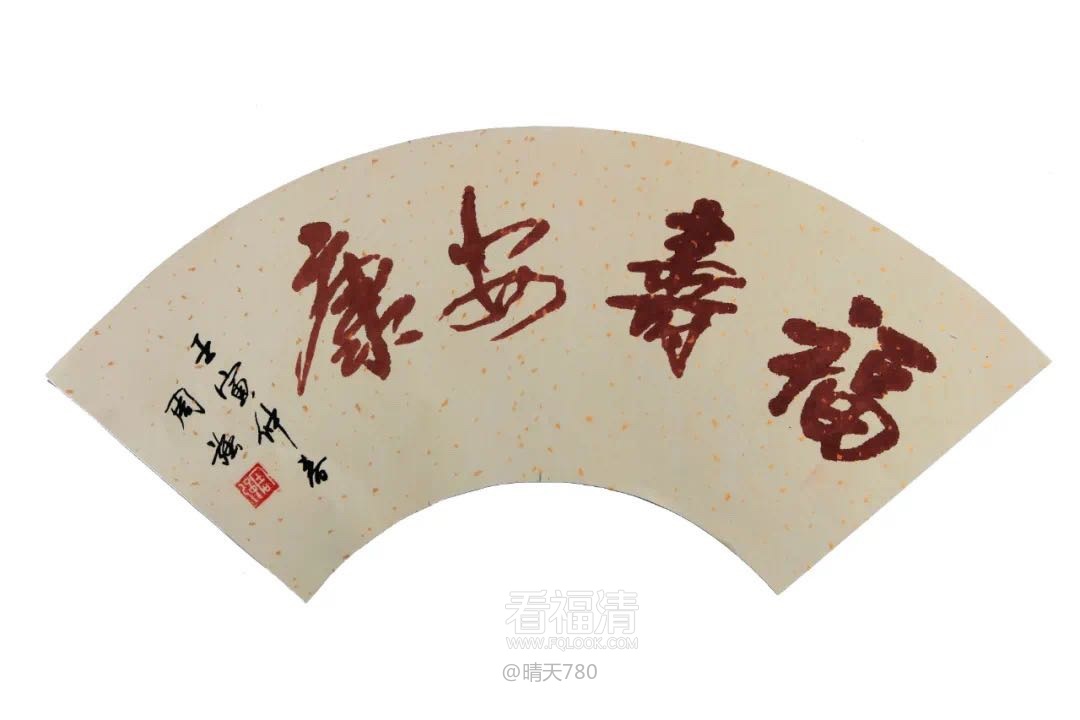 福寿安康
壬寅仲春
周
看福清
WWW.FQLOOK.COM
@晴天780